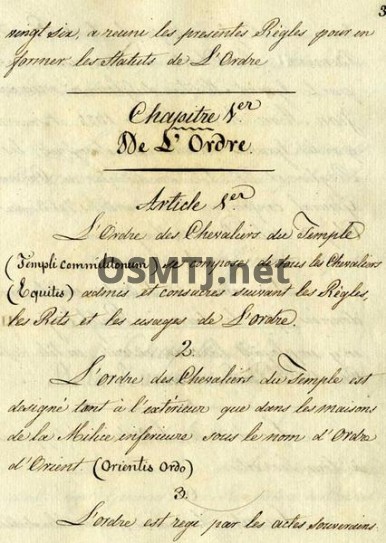 3
vingt six, a reuni les presentes Règles pour en
former les Statuts de L'Ordre
Chapitre 1.er
De L'Ordre.
Article 1.er
L'Ordre des Chevaliers du Temple
(Templi Commilitonum) se compose de tous les Chevaliers
(Equites) admis et consacrés suivant les Règles,
les Rits et les usages de L'ordre.
OSMTJ.net
2.
L'ordre des Chevaliers du Temple est
designé tant à l'extérieure que dans les maisons
de la Milice inférieure sous le nom d'Ordre
d'Orient (Orientis Ordo)
3.
L'ordre est regi par les actes souverains